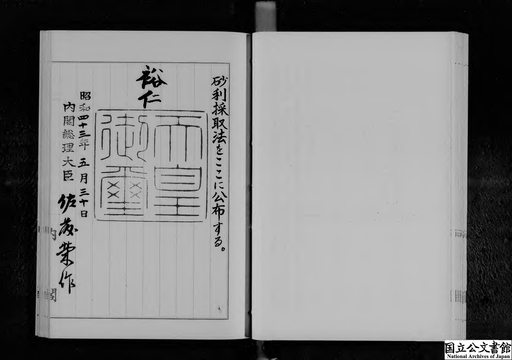 砂利採取法をここに公布する。
裕仁
天皇
御璽
昭和四十三年五月三十日
内閣総理大臣 佐藤榮作
内閣
国立公文書館
National Archives of Japan